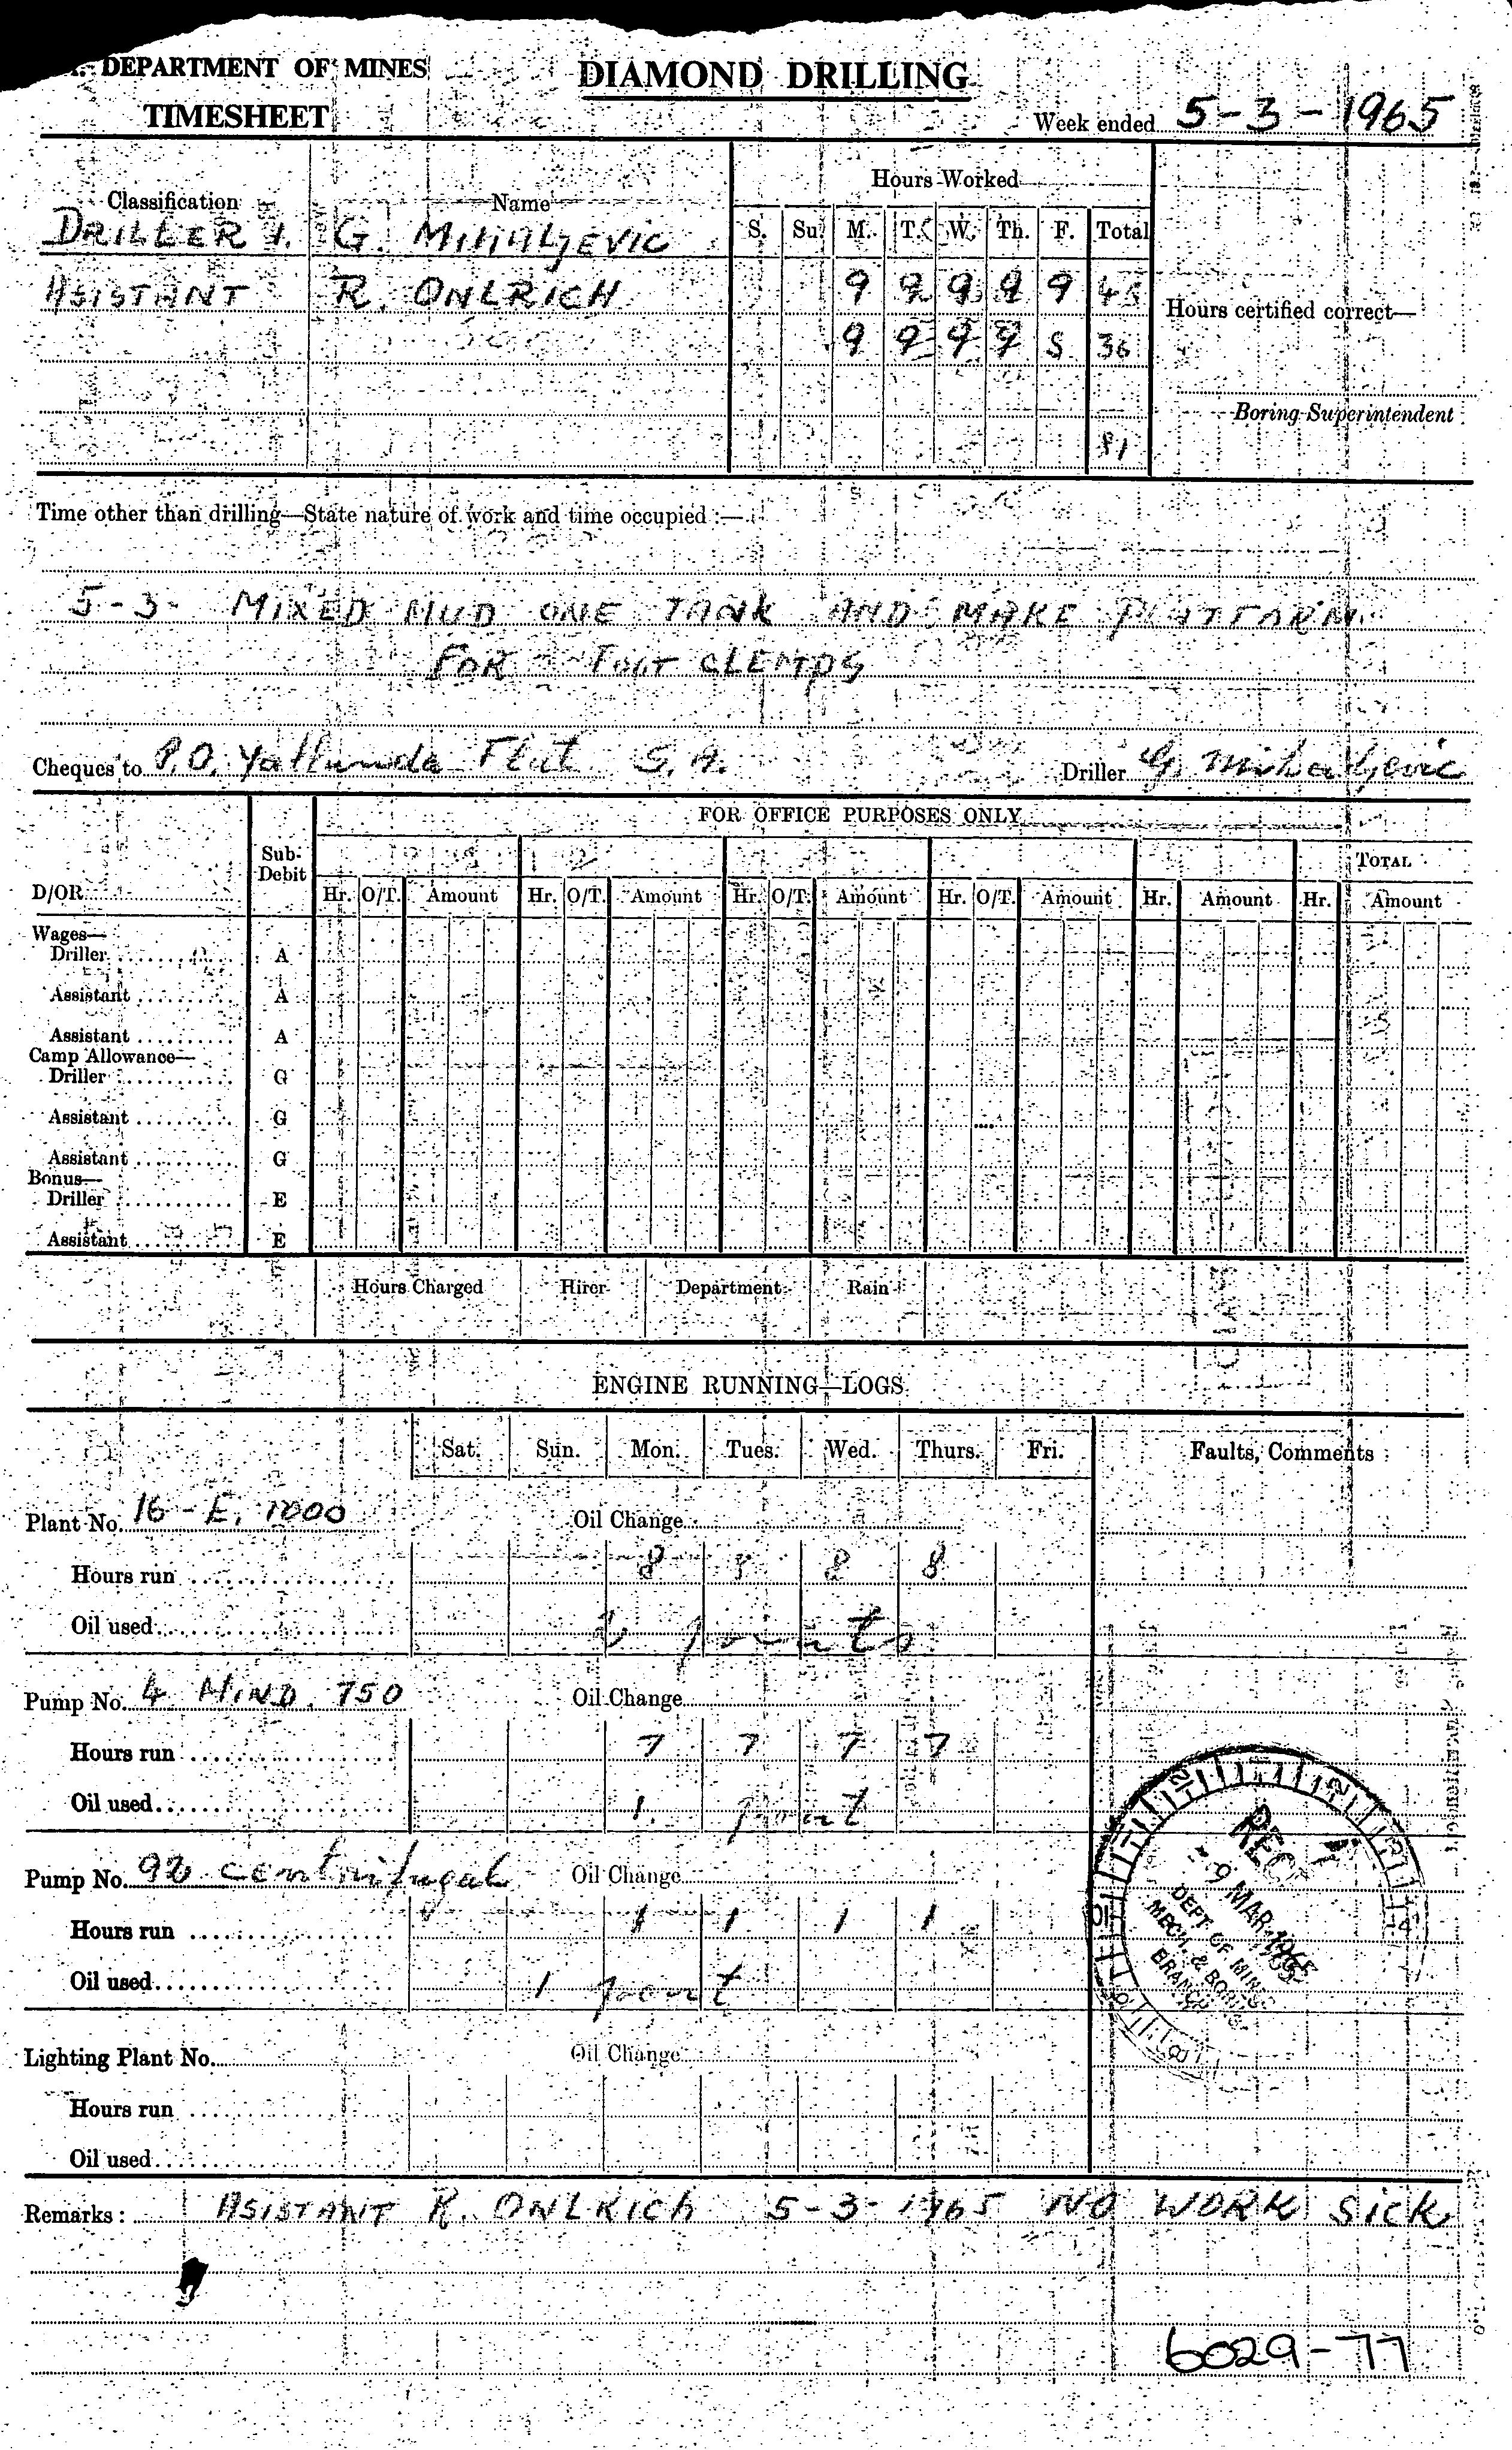 DEPARTMENT OF MINES
DIAMOND DRILLING
TIMESHEET
Week ended 5-3-1965
Hours Worked
Classification Name
S. Su. M. T. W. Th. F. Total
DRILLER 1. G. MIHALJEVIC
ASISTANT R. ONLRICH 9 9 9 9 9 45
Hours certified correct—
9 9 9 9 S 36
Boring Superintendent
81
Time other than drilling—State nature of work and time occupied :—
5-3- MIXED MUD ONE TANK AND MAKE PLATFARM
FOR FOOT CLEMPS
Cheques to P.O. Yallunda Flat S.A. Driller G. Mihaljevic
FOR OFFICE PURPOSES ONLY
Sub-Debit TOTAL
D/OR Hr. O/T. Amount Hr. O/T. Amount Hr. O/T. Amount Hr. O/T. Amount Hr. Amount Hr. Amount
Wages—
Driller A
Assistant A
Assistant A
Camp Allowance—
Driller G
Assistant G
Assistant G
Bonus—
Driller E
Assistant E
Hours Charged Hirer Department Rain
ENGINE RUNNING—LOGS
Sat. Sun. Mon. Tues. Wed. Thurs. Fri. Faults, Comments
Plant No. 16-E. 1000 Oil Change
Hours run 8 8 8 8
Oil used 2 points
Pump No. 4 MIND. 750 Oil Change
Hours run 7 7 7 7
Oil used 1. point
Pump No. 92 centrifugal Oil Change
Hours run 1 1 1 1
Oil used 1 point
RECD
- 9 MAR 1965
DEPT OF MINES
MECH. & BORING
BRANCH
Lighting Plant No. Oil Change
Hours run
Oil used
Remarks : ASISTANT R. ONLRICH 5-3-1965 NO WORK SICK
6029-77